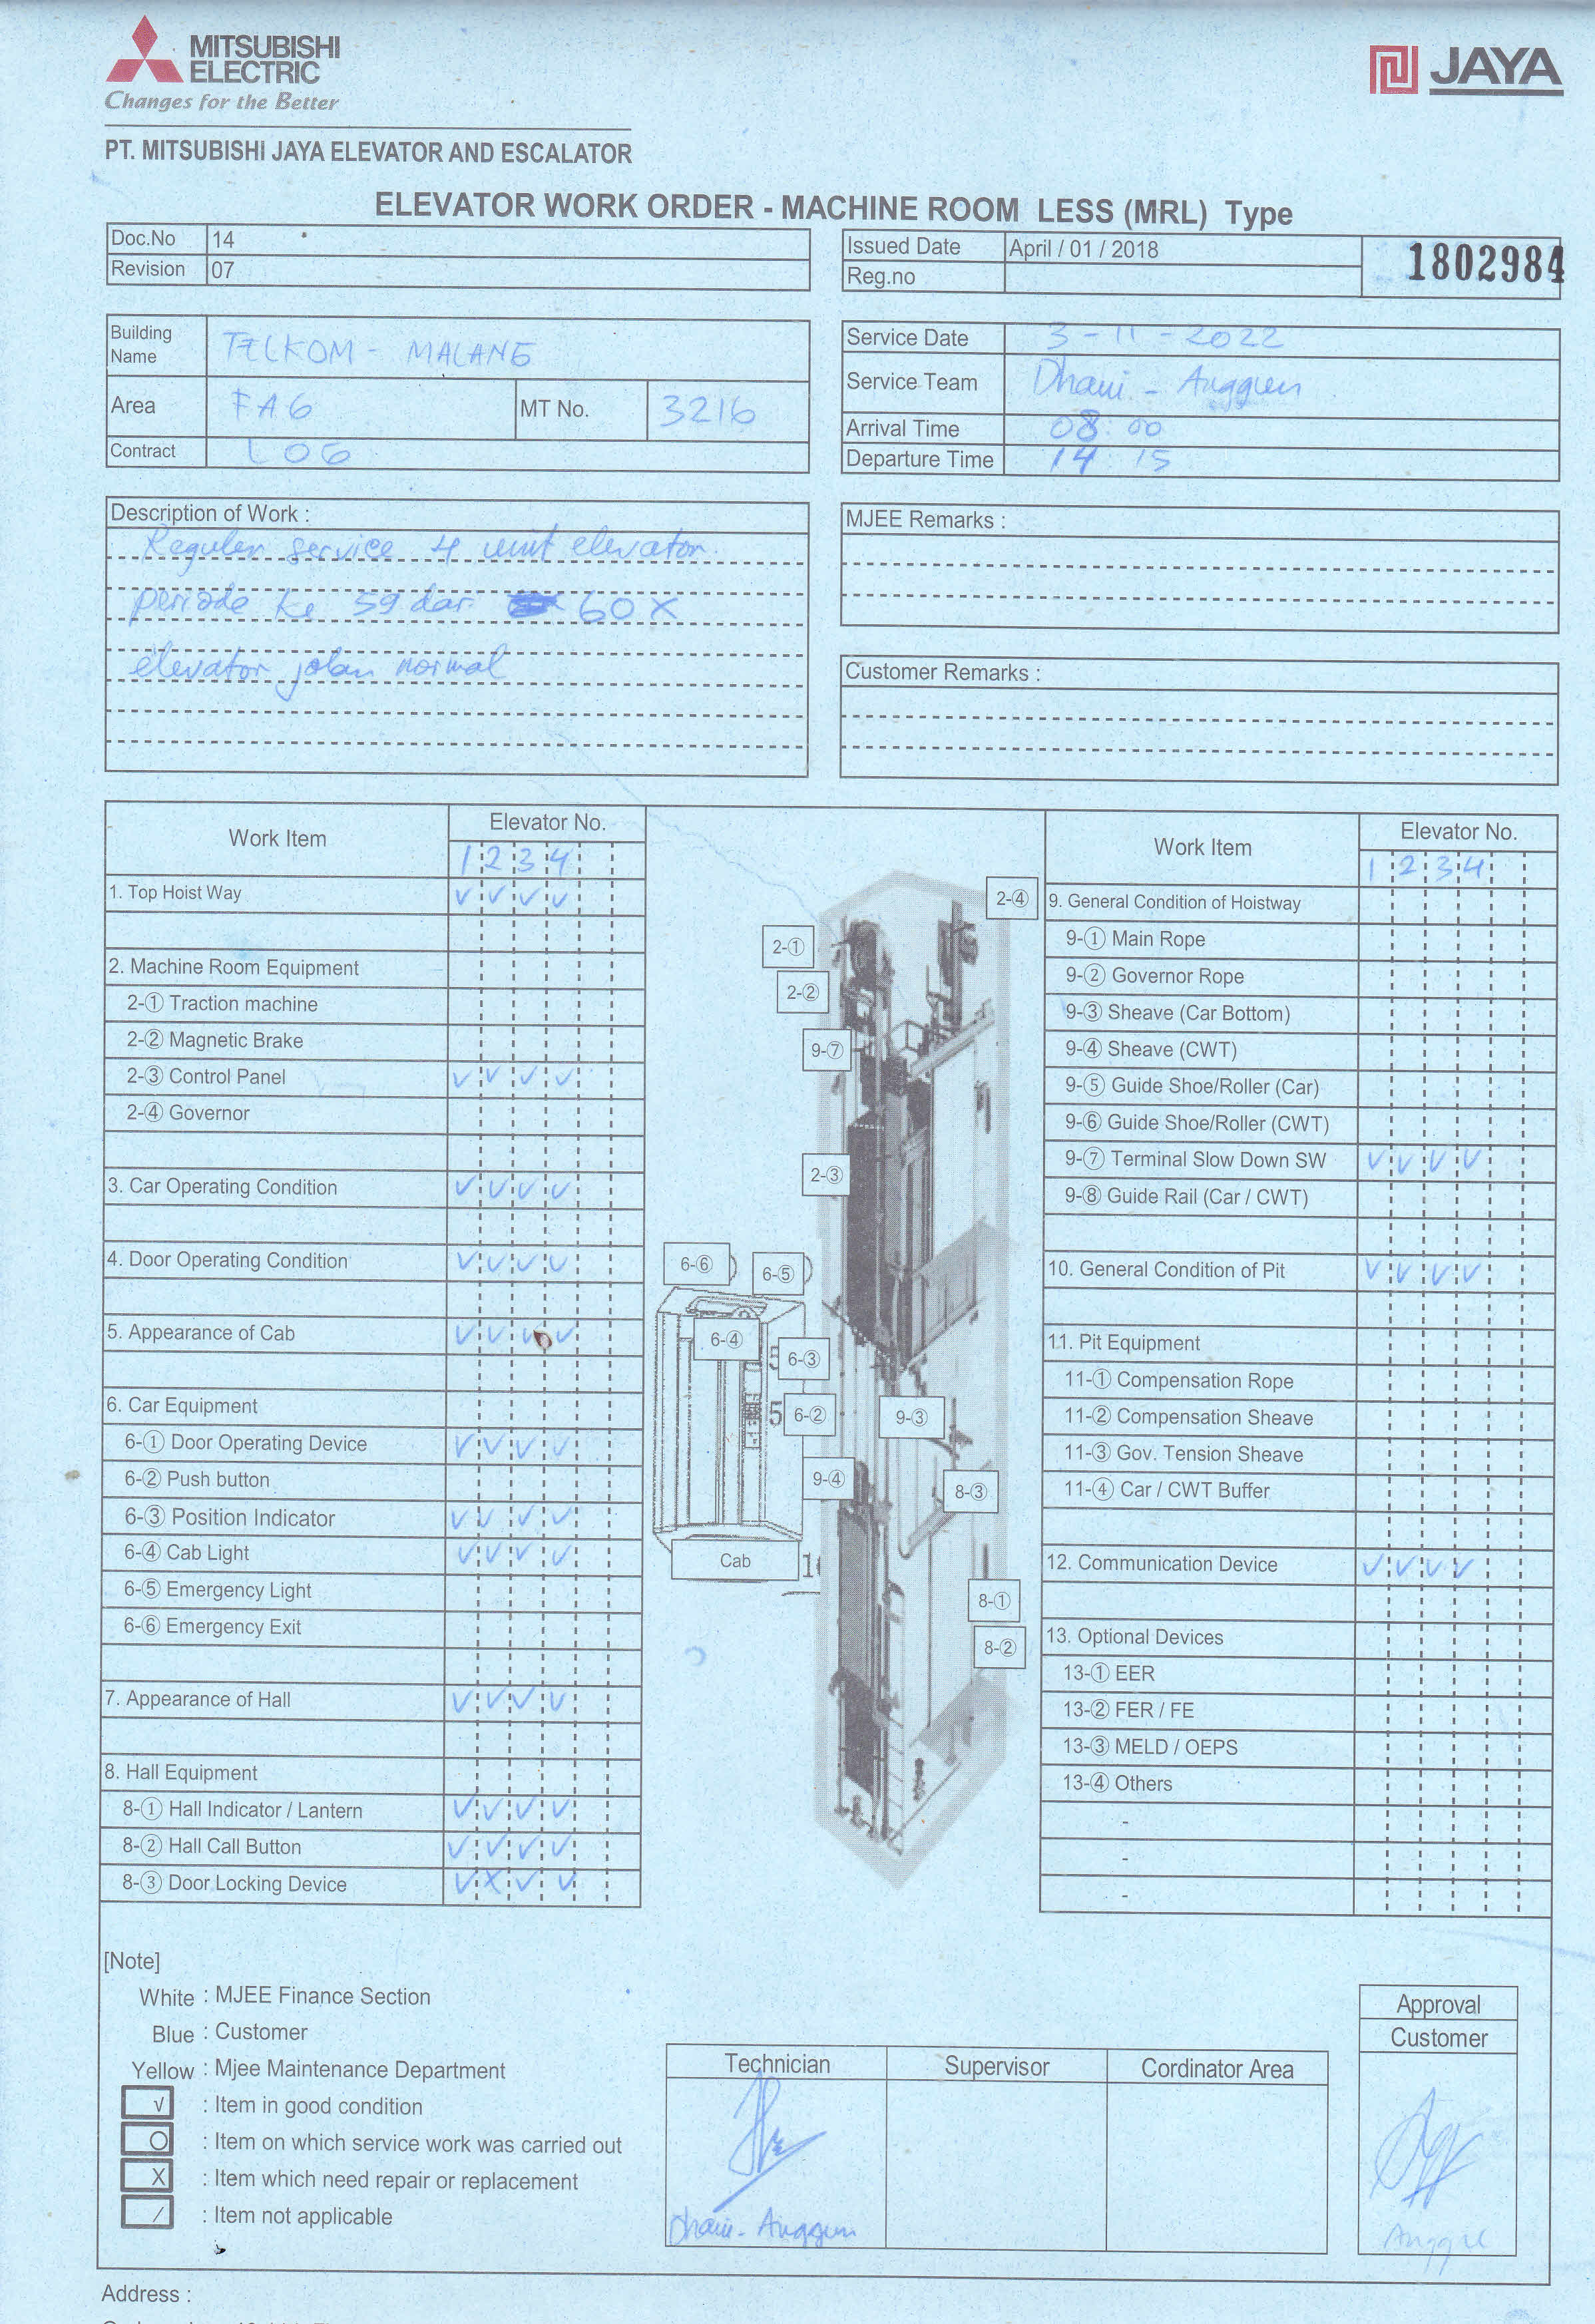 MITSUBISHI
ELECTRIC
Changes for the Better
JAYA
PT. MITSUBISHI JAYA ELEVATOR AND ESCALATOR
ELEVATOR WORK ORDER - MACHINE ROOM LESS (MRL) Type
Doc.No 14
Revision 07
Issued Date April / 01 / 2018
Reg.no
1802984
Building Name TELKOM - MALANG
Area FA6 MT No. 3216
Contract LOG
Service Date 3 - 11 - 2022
Service Team Dhani - Anggun
Arrival Time 08:00
Departure Time 14 15
Description of Work :
Reguler service 4 unit elevator.
periode ke 59 dar 60 X
elevator jalan normal
MJEE Remarks :
Customer Remarks :
Work Item Elevator No.
1 2 3 4
1. Top Hoist Way √ √ √ √
2. Machine Room Equipment
2-① Traction machine
2-② Magnetic Brake
2-③ Control Panel √ √ √ √
2-④ Governor
3. Car Operating Condition √ √ √ √
4. Door Operating Condition √ √ √ √
5. Appearance of Cab √ √ √ √
6. Car Equipment
6-① Door Operating Device √ √ √ √
6-② Push button
6-③ Position Indicator √ √ √ √
6-④ Cab Light √ √ √ √
6-⑤ Emergency Light
6-⑥ Emergency Exit
7. Appearance of Hall √ √ √ √
8. Hall Equipment
8-① Hall Indicator / Lantern √ √ √ √
8-② Hall Call Button √ √ √ √
8-③ Door Locking Device √ X √ √
2-④
2-①
2-②
9-⑦
2-③
6-⑥
6-⑤
6-④
6-③
5
6-②
9-③
9-④
8-③
Cab
8-①
8-②
Work Item Elevator No.
1 2 3 4
9. General Condition of Hoistway
9-① Main Rope
9-② Governor Rope
9-③ Sheave (Car Bottom)
9-④ Sheave (CWT)
9-⑤ Guide Shoe/Roller (Car)
9-⑥ Guide Shoe/Roller (CWT)
9-⑦ Terminal Slow Down SW √ √ √ √
9-⑧ Guide Rail (Car / CWT)
10. General Condition of Pit √ √ √ √
11. Pit Equipment
11-① Compensation Rope
11-② Compensation Sheave
11-③ Gov. Tension Sheave
11-④ Car / CWT Buffer
12. Communication Device √ √ √ √
13. Optional Devices
13-① EER
13-② FER / FE
13-③ MELD / OEPS
13-④ Others
-
-
-
[Note]
White : MJEE Finance Section
Blue : Customer
Yellow : Mjee Maintenance Department
√ : Item in good condition
O : Item on which service work was carried out
X : Item which need repair or replacement
/ : Item not applicable
Technician Supervisor Cordinator Area
Dhani - Anggun
Approval
Customer
Address :